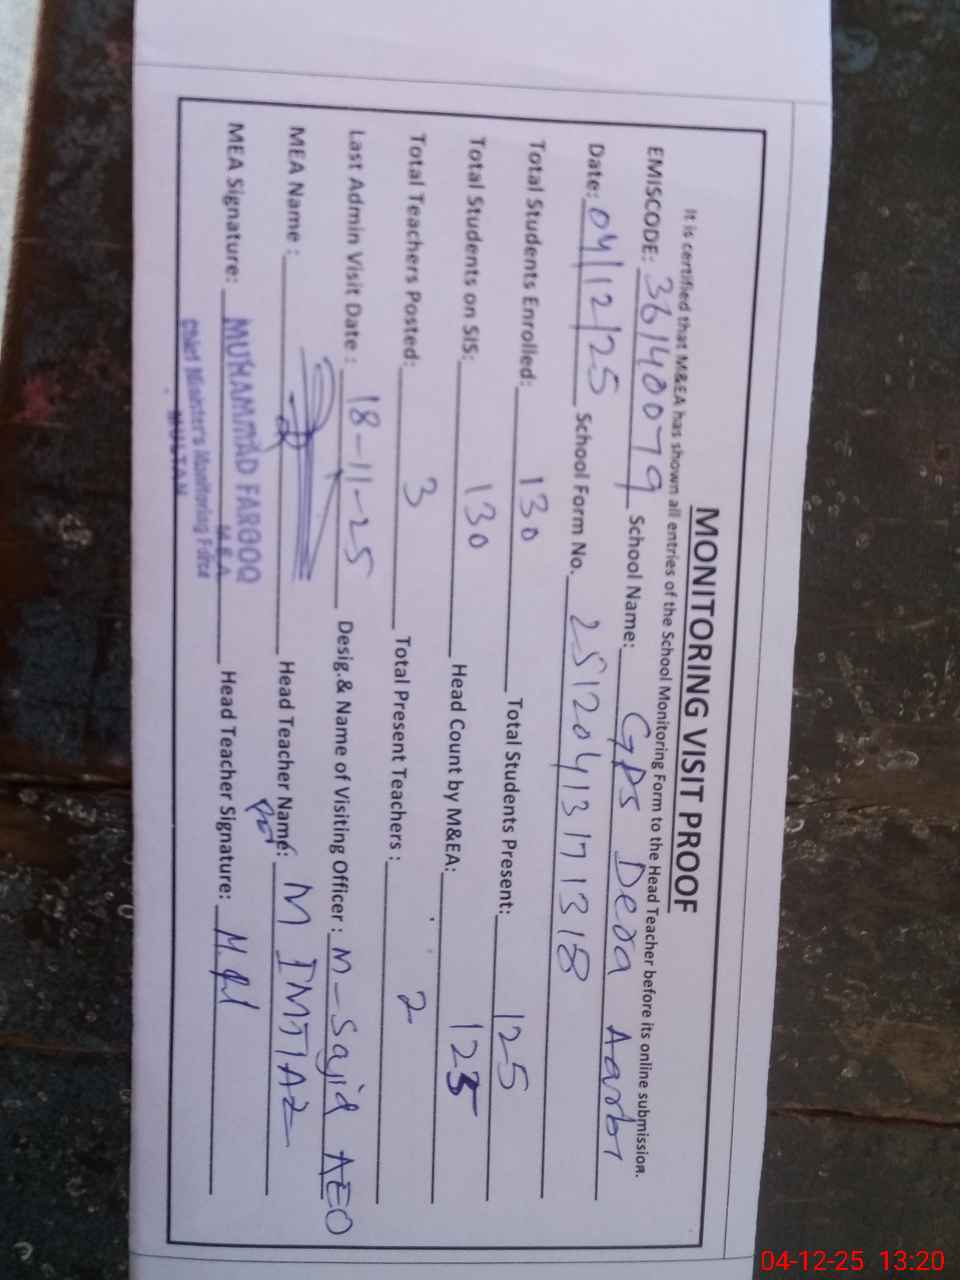 MONITORING VISIT PROOF
It is certified that M&EA has shown all entries of the School Monitoring Form to the Head Teacher before its online submission.
EMISCODE: 36140079 School Name: GPS Dera
Date: 04/12/25 School Form No. 25120413171318
Total Students Enrolled: 130 Total Students Present: 125
Total Students on SIS: 130 Head Count by M&EA: 125
Total Teachers Posted: 3 Total Present Teachers : 2
Last Admin Visit Date : 18-11-25 Desig.& Name of Visiting Officer : M-Sajid AEO
MEA Name : Head Teacher Name: M IMTIAZ
MEA Signature: MUHAMMAD FAROOQ Head Teacher Signature:
M.E.A
Chief Minister's Monitoring Force
MULTAN
04-12-25 13:20